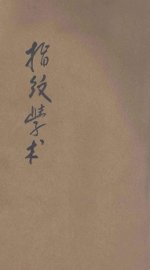 指纹学术